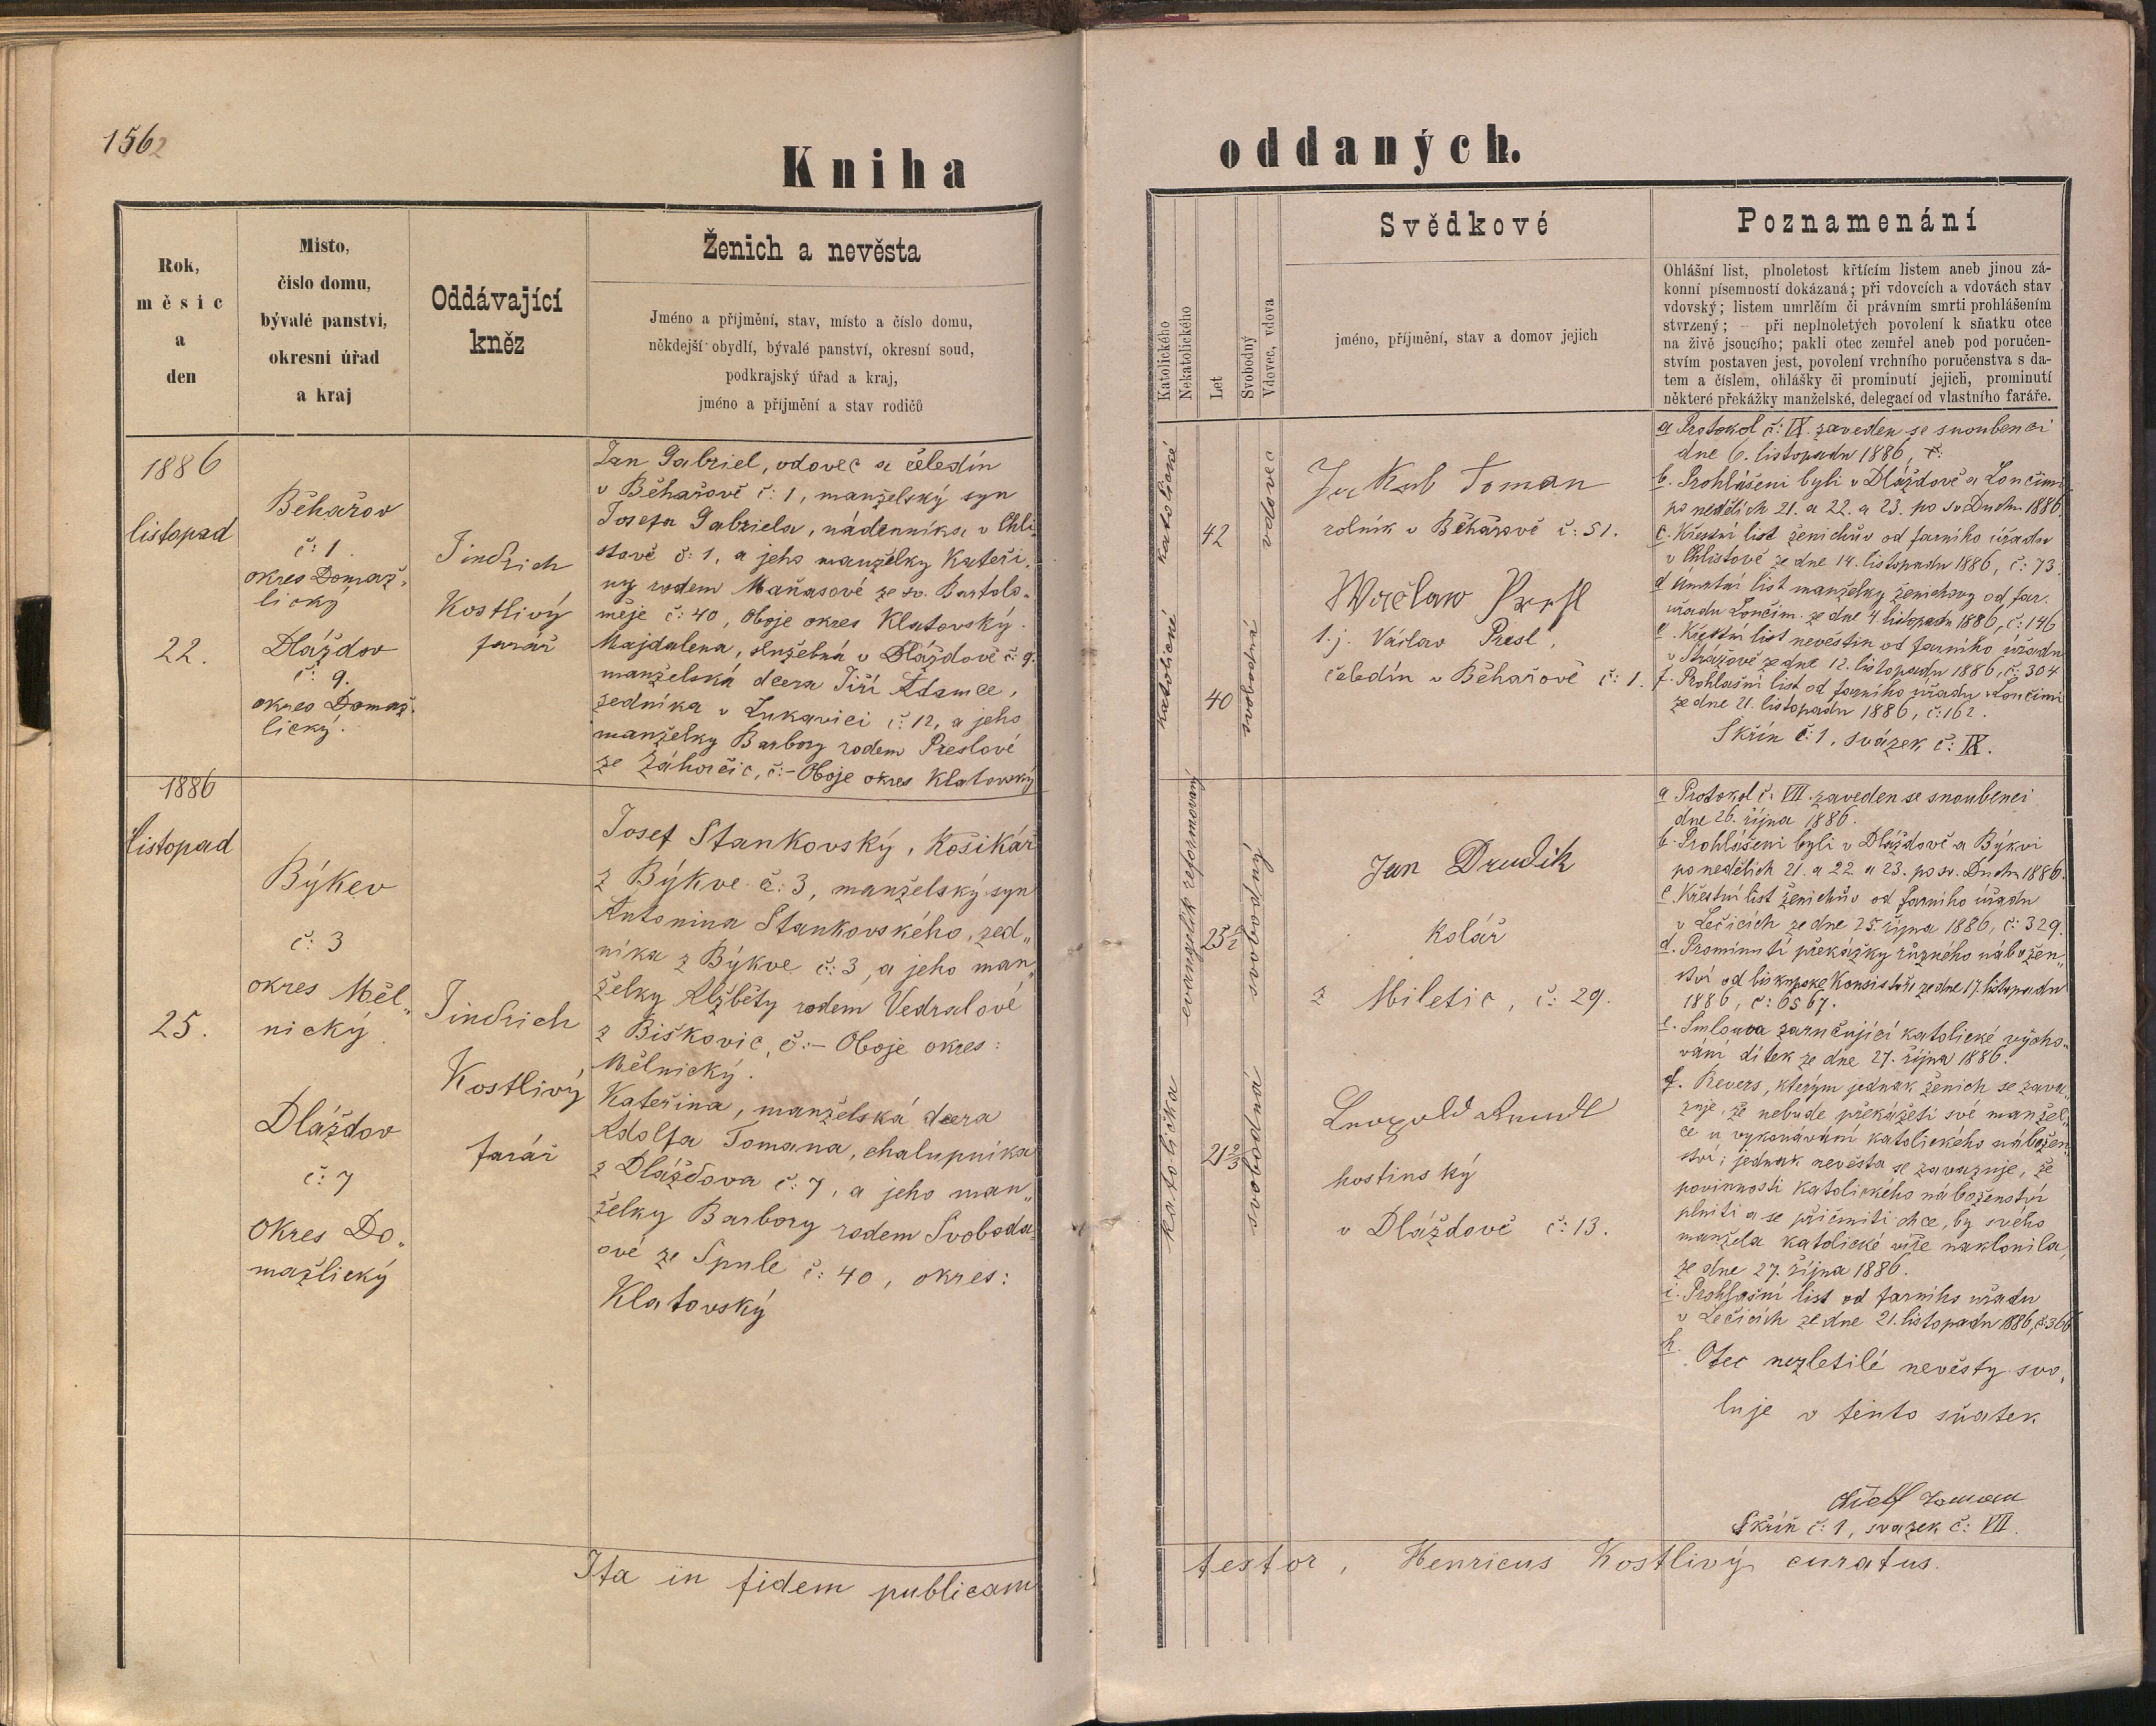 1562
Kniha
oddaných.
Rok,
měsíc
a
den
Misto,
čislo domu,
bývalé panstvi,
okresni úřad
a kraj
Oddávající
kněz
Ženich a nevěsta
Jméno a příjmění, stav, místo a číslo domu,
někdejší obydlí, bývalé panství, okresní soud,
podkrajský úřad a kraj,
jméno a příjmění a stav rodičů
Katolického
Nekatolického
Let
Svobodný
Vdovec, vdova
Svědkové
jméno, příjmění, stav a domov jejich
Poznamenání
Ohlášní list, plnoletost křtícím listem aneb jinou zá-
konní písemností dokázaná; při vdovcích a vdovách stav
vdovský; listem umrlčím či právním smrti prohlášením
stvrzený; — při neplnoletých povolení k sňatku otce
na živě jsoucího; pakli otec zemřel aneb pod poručen-
stvím postaven jest, povolení vrchního poručenstva s da-
tem a číslem, ohlášky či prominutí jejich, prominutí
některé překážky manželské, delegací od vlastního faráře.
1886
listopad
22.
Běhařov
č: 1.
okres Domaž-
lický
Dláždov
č: 9.
okres Domaž-
lický.
Jindřich
Kostlivý
farář
Jan Gabriel, vdovec a čeledín
v Běhařově č: 1, manželský syn
Josefa Gabriela, nádenníka v Chli-
stově č: 1, a jeho manželky Kateři-
ny rodem Maňasové ze sv. Bartolo-
měje č: 40, Oboje okres Klatovský.
Majdalena, služebná v Dláždově č: 9.
manželská dcera Jiří Adamce,
zedníka v Lukavici č: 12, a jeho
manželky Barbory rodem Preslové
ze Záhorčic, č:- Oboje okres Klatovský
katolické
42
vdovec
katolické
40
svobodná
Jakub Toman
rolník v Běhařově č: 51.
Wáclaw Presl
t. j. Václav Presl,
čeledín v Běhařově č: 1.
a Protokol č: IX. zaveden se snoubenci
dne 6. listopadu 1886,
b. Prohlášeni byli v Dláždově a Loučimi
po nedělích 21. a 22. a 23. po sv Duchu 1886.
c. Křestní list ženichův od farního úřadu
v Chlistově ze dne 14. listopadu 1886, č: 73.
d úmrtní list manželky ženichovy od far.
úřadu Loučim. ze dne 4. listopadu 1886, č: 146
e. Křestní list nevěstin od farního úřadu
v Strážově ze dne 12. listopadu 1886, č: 304
f. Prohlašní list od farního úřadu v Loučimi
ze dne 21. listopadu 1886, č: 162.
Skříň č: 1, svazek č: IX.
1886
listopad
25.
Býkev
č: 3
okres Měl-
nický
Dláždov
č: 7
okres Do-
mažlický
Jindřich
Kostlivý
farář
Josef Stankovský, košikář
z Býkve č: 3, manželský syn
Antonina Stankovského, zed-
níka z Býkve č: 3, a jeho man-
želky Alžběty rodem Vedralové
z Biškovic, č:- Oboje okres:
Mělnický.
Kateřina, manželská dcera
Adolfa Tomana, chalupníka
z Dláždova č: 7, a jeho man-
želky Barbory rodem Svobodo-
ové ze Spule č: 40, okres:
Klatovský
evangelík reformovaný
svobodný
katolička
21 2/3
svobodná
Jan Drudík
kolář
z Miletic, č: 29.
Leopold
hostinský
v Dláždově č: 13.
a Protokol č: VII. zaveden se snoubenci
dne 26. října 1886.
b. Prohlášeni byli v Dláždově a Býkvi
po nedělich 21. a 22 a 23. po sv. Duchu 1886.
c. Křestní list ženichův od farního úřadu
v Lečicích ze dne 25. října 1886, č: 329.
d. Prominutí překážky různého nábožen-
ství od biskupské Konsistoře ze dne 17. listopadu
1886, č: 6567.
e. Smlouva zaručující katolické vycho-
vání dítek ze dne 27. října 1886.
f. Revers, kterým jednak ženich se zava-
zuje, že nebude překážeti své manžel-
ce u vykonávání katolického nábožen-
ství; jednak nevěsta se zavazuje, že
povinnosti katolického náboženství
plniti a se přičiniti chce, by svého
manžela katolické víře naklonila,
ze dne 27. října 1886.
i. Prohlašní list od farního úřadu
v Lečicích ze dne 21. listopadu 1886, č: 366
h. Otec nezletilé nevěsty svo-
luje v tento sňatek
Adolf Toman
Skříň č: 1, svazek č: VII.
Ita in fidem publicam
testor, Henricus Kostlivý curatus.